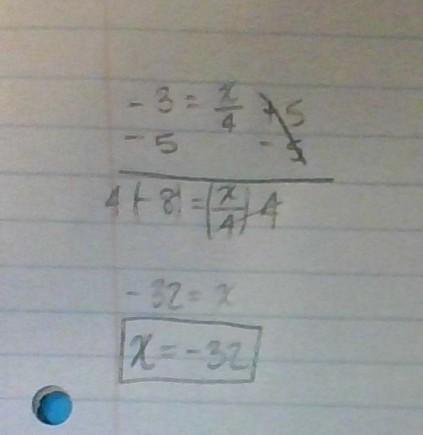 -3 = x/4 + 5
-5 -5
4(-8) = (x/4) 4
-32 = x
x = -32